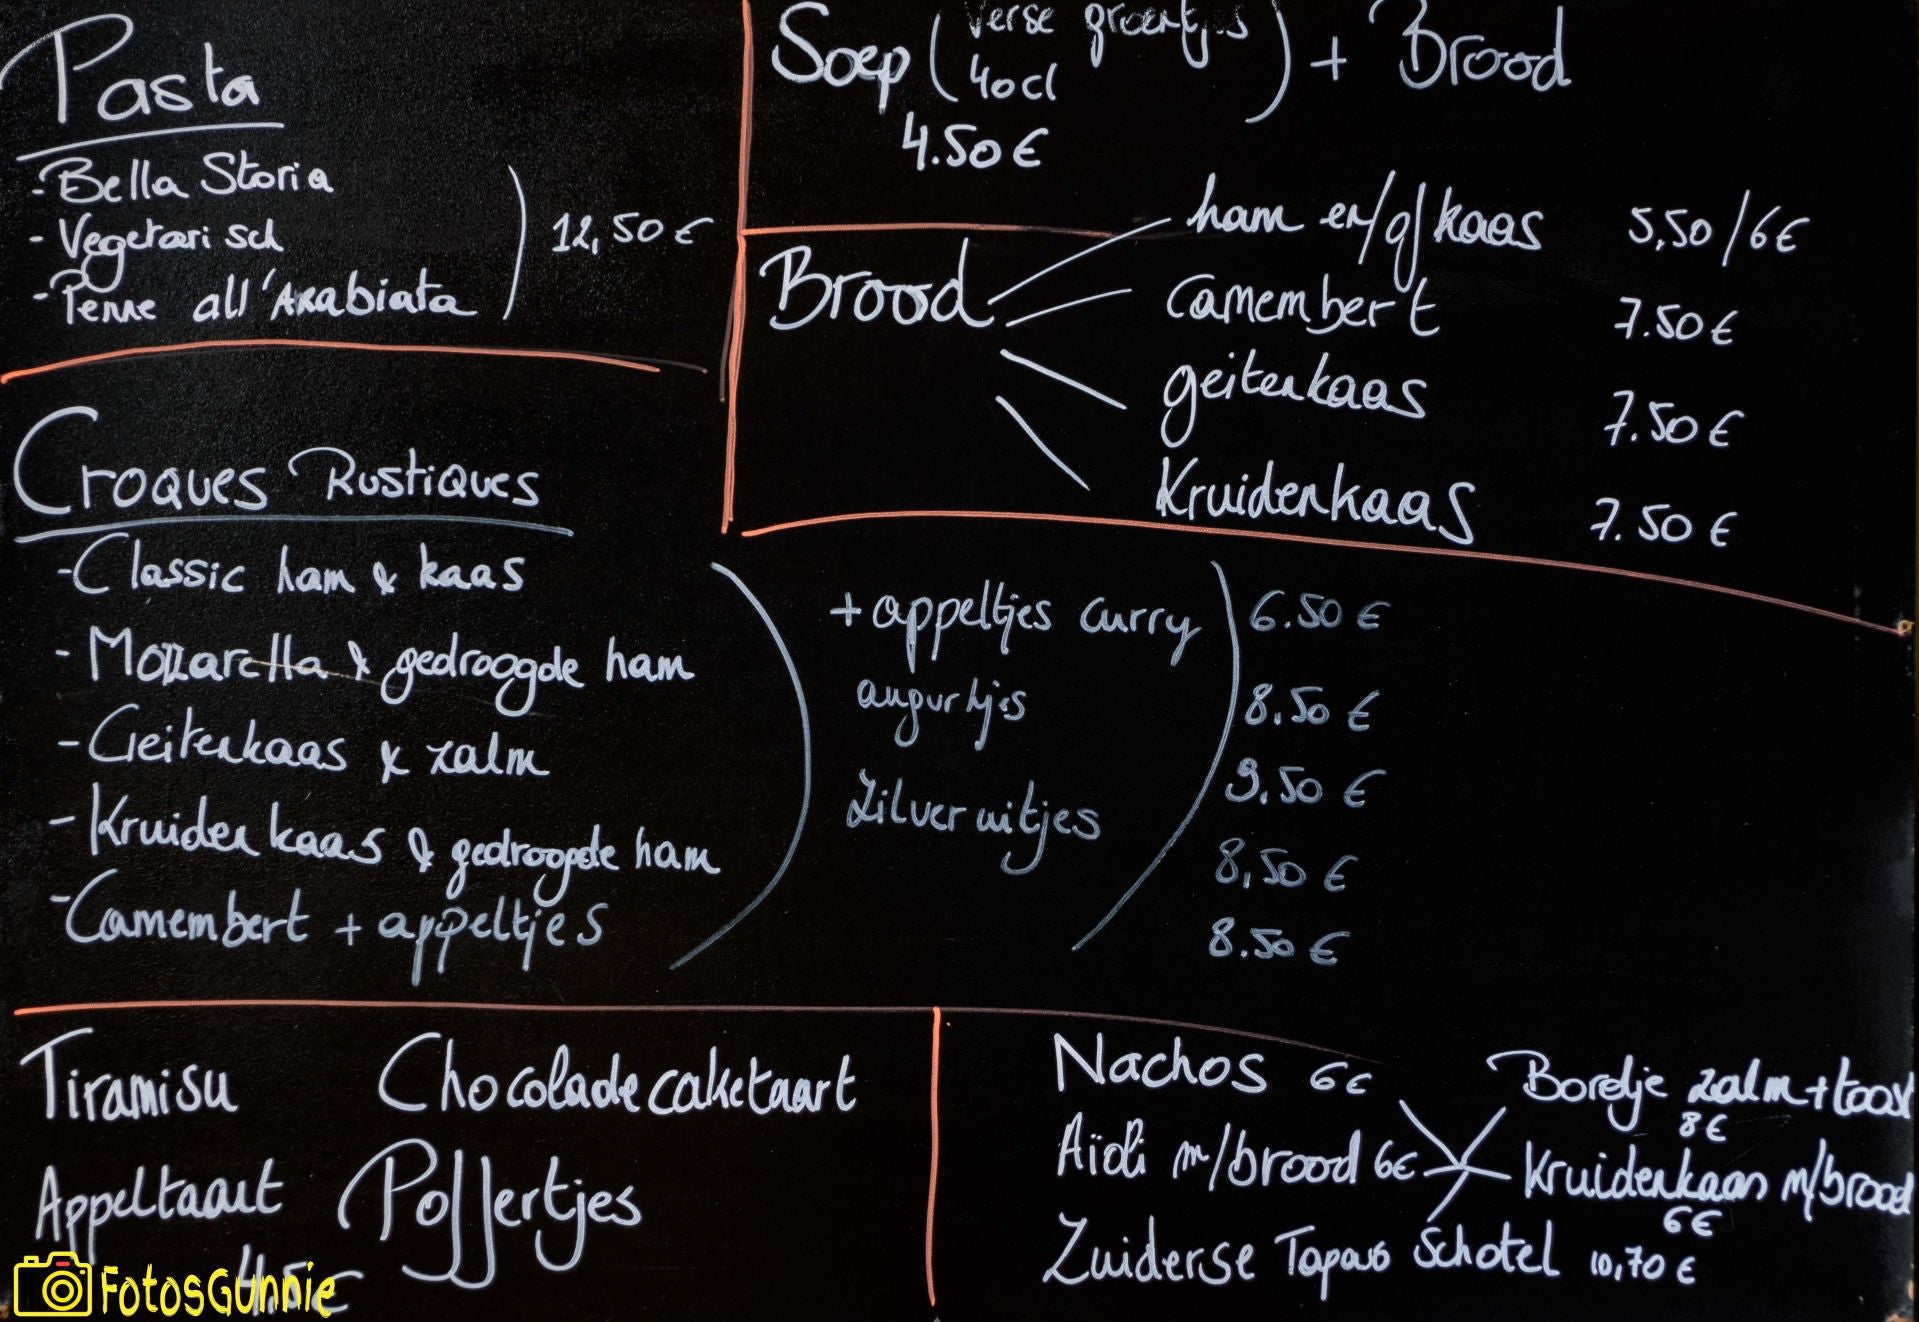 Pasta
- Bella Storia
- Vegetarisch
- Penne all'Arabiata
12,50 €
Soep ( verse groentjes
40cl ) + Brood
4.50 €
Brood
ham en/of kaas 5,50/6€
camembert 7.50 €
geitenkaas 7.50 €
Kruidenkaas 7.50 €
Croques Rustiques
- Classic ham & kaas
- Mozzarella & gedroogde ham
- Geitenkaas & zalm
- Kruidenkaas & gedroogde ham
- Camembert + appeltjes
+ appeltjes curry
augurtjes
Zilveruitjes
6.50 €
8.50 €
9.50 €
8,50 €
8.50 €
Tiramisu Chocoladecaketaart
Appeltaart Poffertjes
4,5 €
Nachos 6€
Aïoli m/brood 6€
Zuiderse Tapas Schotel 10,70 €
Bordje zalm + toast
8€
Kruidenkaas m/brood
6€
FotosGunnie